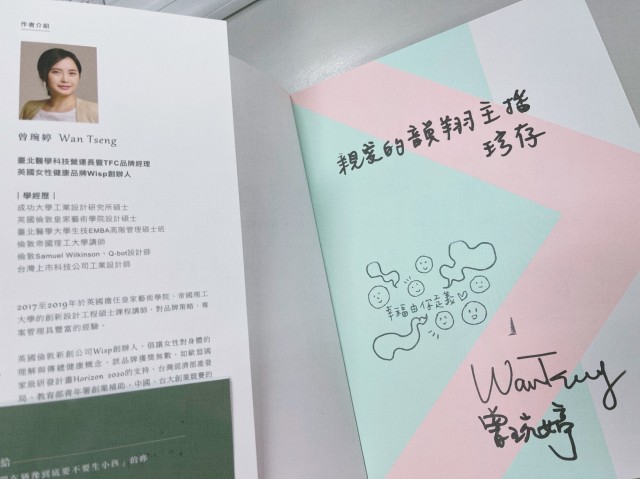 作者介紹
曾琬婷 Wan Tseng
臺北醫學科技營運長暨TFC品牌經理
英國女性健康品牌Wisp創辦人
｜學經歷｜
成功大學工業設計研究所碩士
英國倫敦皇家藝術學院設計碩士
臺北醫學大學生技EMBA高階管理碩士班
倫敦帝國理工大學講師
倫敦Samuel Wilkinson、Q-bot設計師
台灣上市科技公司工業設計師
2017至2019年於英國擔任皇家藝術學院、帝國理工
大學的創新設計工程碩士課程講師，對品牌策略、專
案管理具豐富的經驗。
英國倫敦新創公司Wisp創辦人，倡議女性對身體的
理解與傳統健康概念，該品牌獲獎無數，如歐盟國
家級研發計畫Horizon 2020的支持、台灣經濟部產發
局、教育部青年署創業補助、中國、台大創業競賽的
給
到底要不要生小孩」的你
親愛的韻翔主播
珍存
幸福由你定義
Wan Tseng
曾琬婷